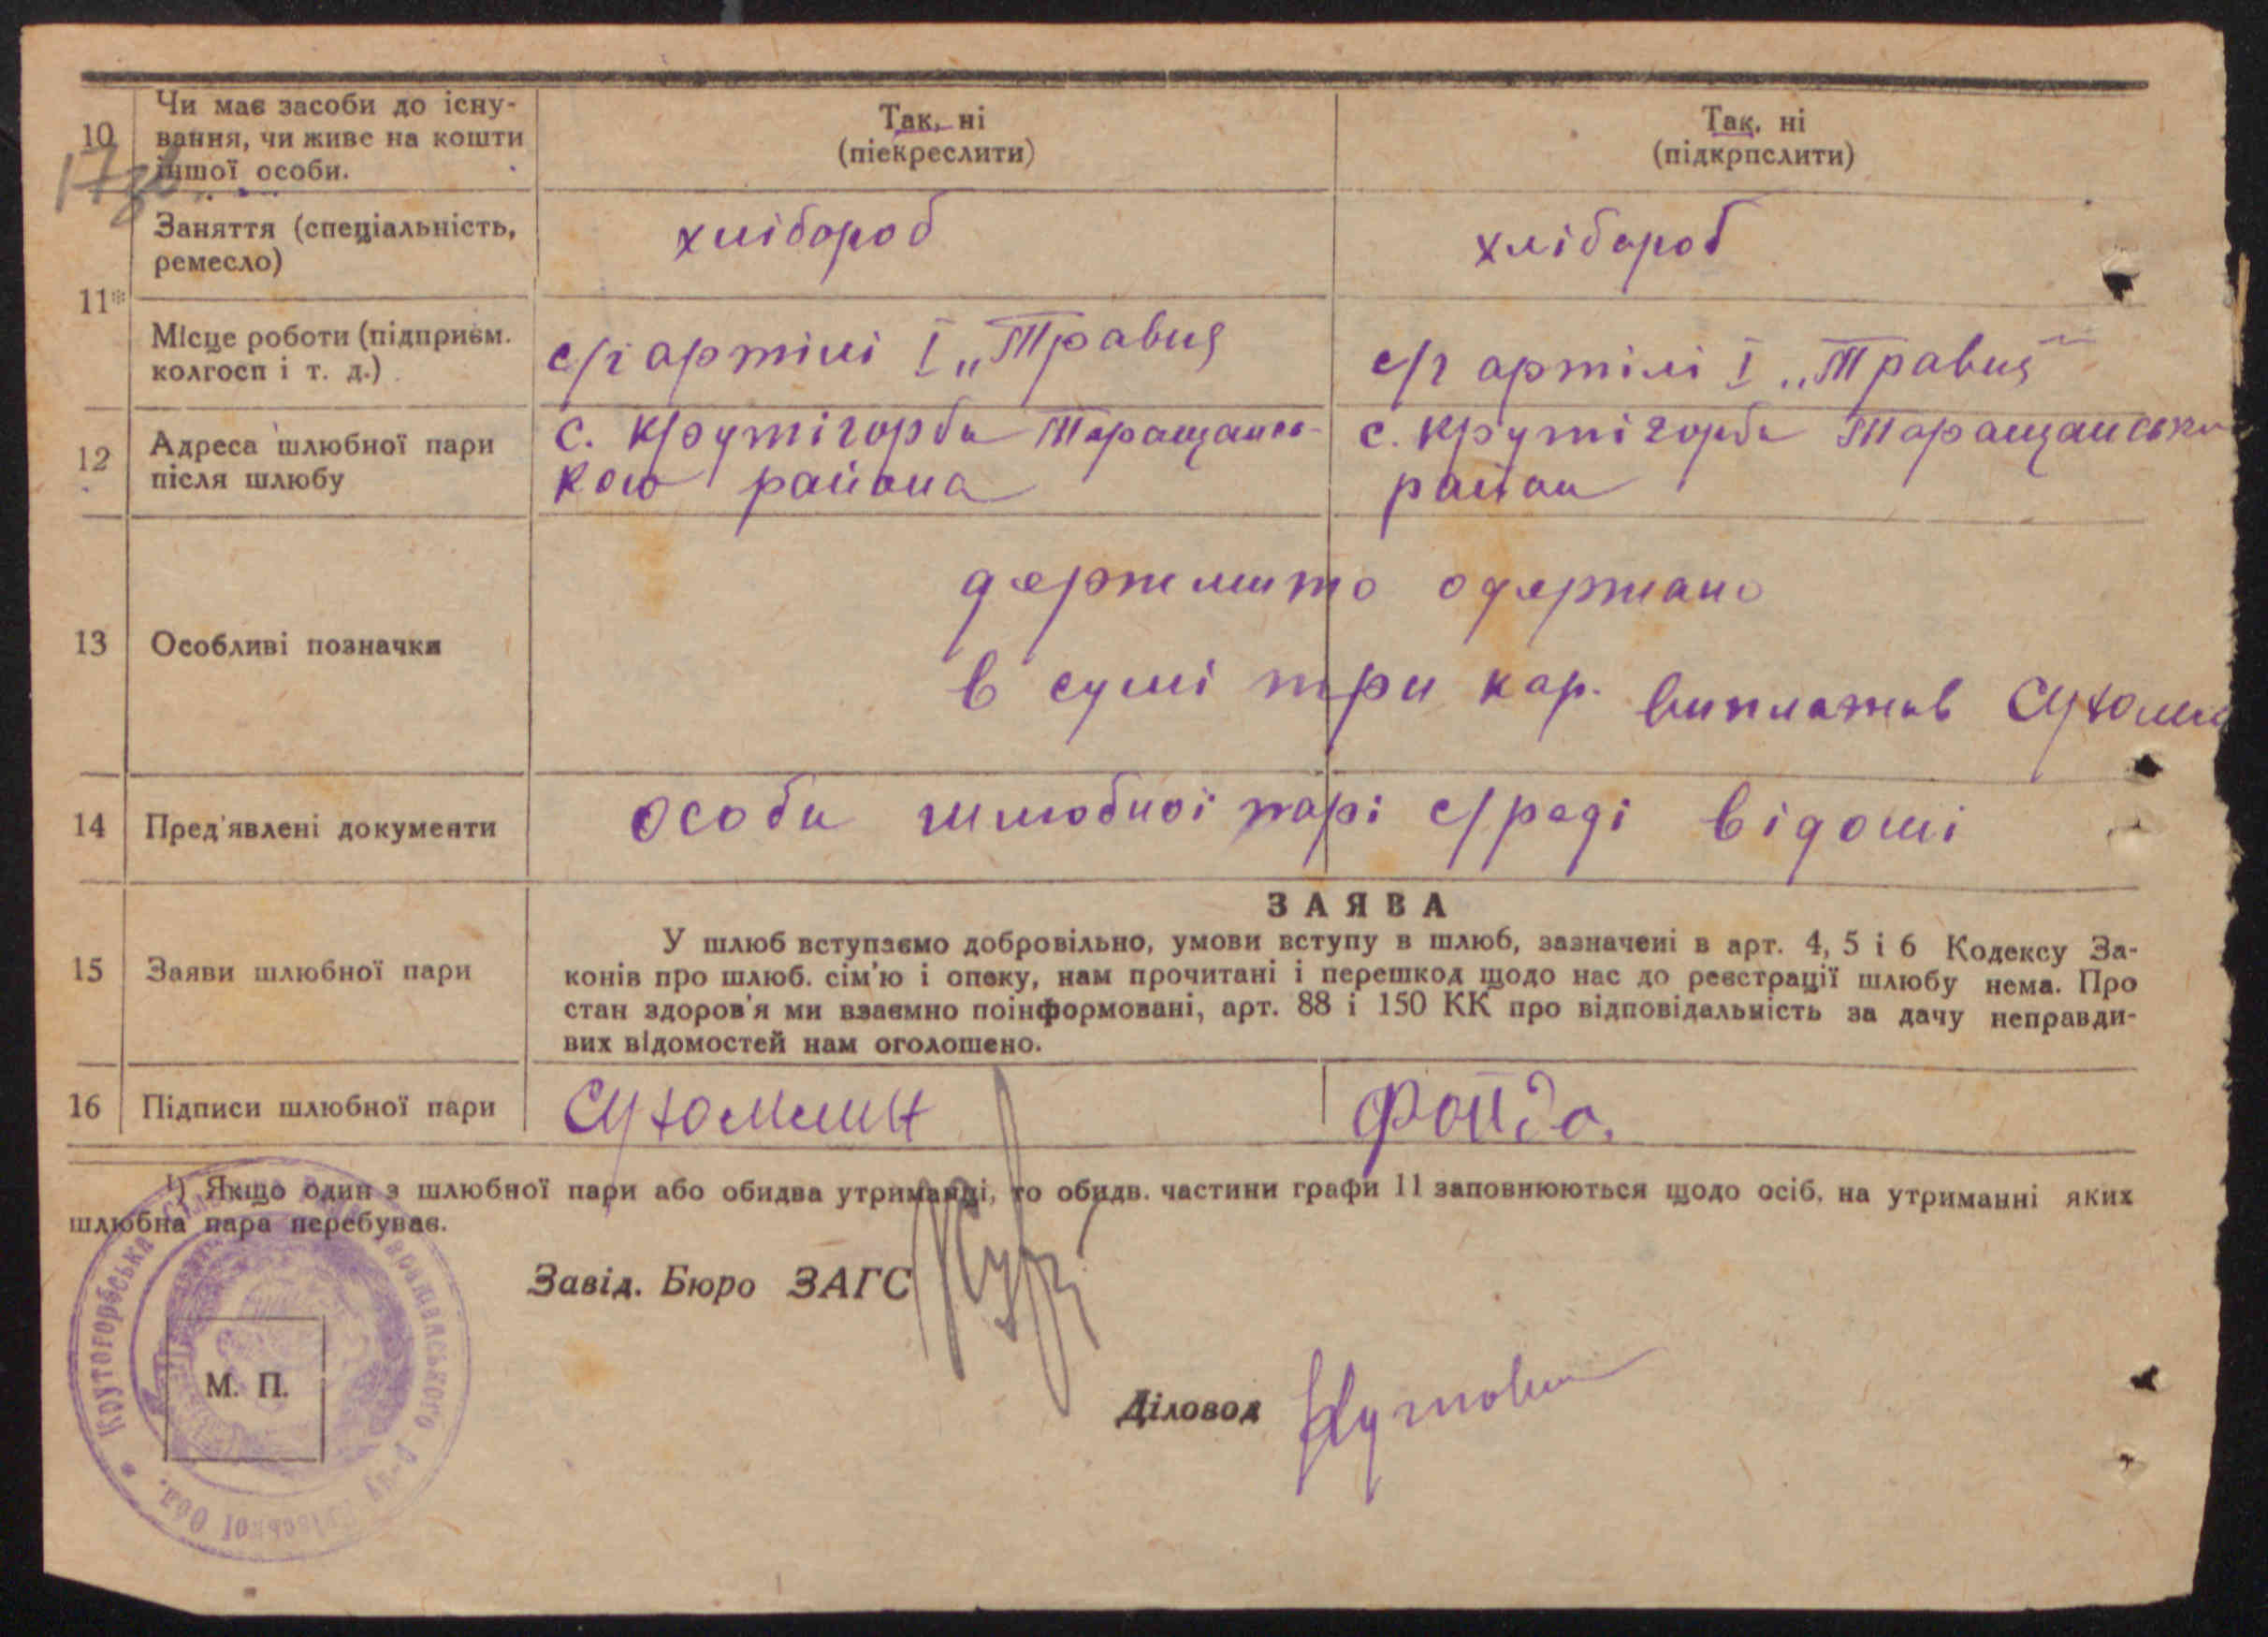 10
Чи має засоби до існу-
вання, чи живе на кошти
іншої особи.
Так, ні
(піекреслити)
Так, ні
(підкрпслити)
17
11*
Заняття (спеціальність,
ремесло)
хлібороб
хлібороб
Місце роботи (підприєм.
колгосп і т. д.)
с/г артілі І „Травня
с/г артілі І „Травня"
12
Адреса шлюбної пари
після шлюбу
с. Крутігорби Таращансь-
кого района
с. Крутігорби Таращансько
район
13
Особливі позначки
держмито одержано
в сумі три кар. виплатив Сухомли
14
Пред'явлені документи
особи шлюбної парі с/раді відомі
15
Заяви шлюбної пари
ЗАЯВА
У шлюб вступаємо добровільно, умови вступу в шлюб, зазначені в арт. 4, 5 і 6 Кодексу За-
конів про шлюб. сім'ю і опеку, нам прочитані і перешкод щодо нас до реєстрації шлюбу нема. Про
стан здоров'я ми взаємно поінформовані, арт. 88 і 150 КК про відповідальність за дачу неправди-
вих відомостей нам оголошено.
16
Підписи шлюбної пари
Сухомлин
Фойда.
¹) Якщо один з шлюбної пари або обидва утриманці, то обидв. частини графи 11 заповнюються щодо осіб, на утриманні яких
шлюбна пара перебуває.
Завід. Бюро ЗАГС
Діловод
М. П.
Крутогорбська р-ну Київської Обл.